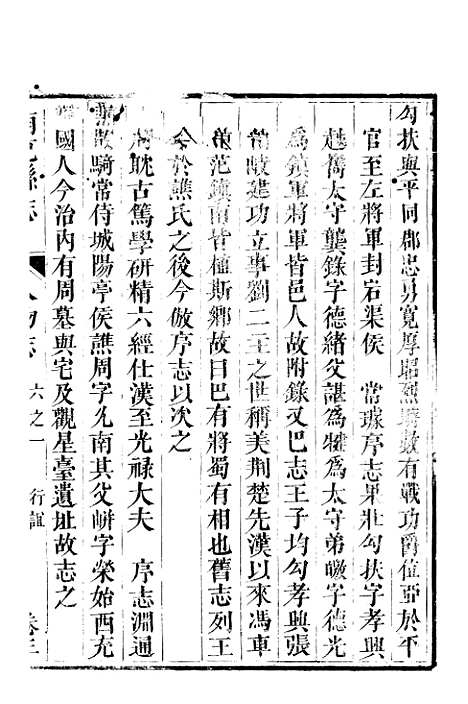 勾扶與平同郡忠勇寬厚昭烈時數有戰功爵位亞於平
官至左將軍封宕渠侯　常璩序志果壯勾扶字孝興
越嶲太守龔錄字德緒父諶為犍為太守弟皦字德光
為鎮軍將軍皆邑人故附錄又巴志王子均勾孝興
建功立事劉二主之世稱美荆楚先漢以來馮車
范鎮南皆植斯鄉故曰巴有將蜀有相也舊志列王
於譙氏之後今倣序志以次之
耽古篤學研精六經仕漢至光祿大夫　序志淵通
散騎常侍城陽亭侯譙周字允南其父𡸁字榮始西充
國人今治內有周墓與宅及觀星臺遺址故志之
縣志　人物志　六之一　行誼　卷三